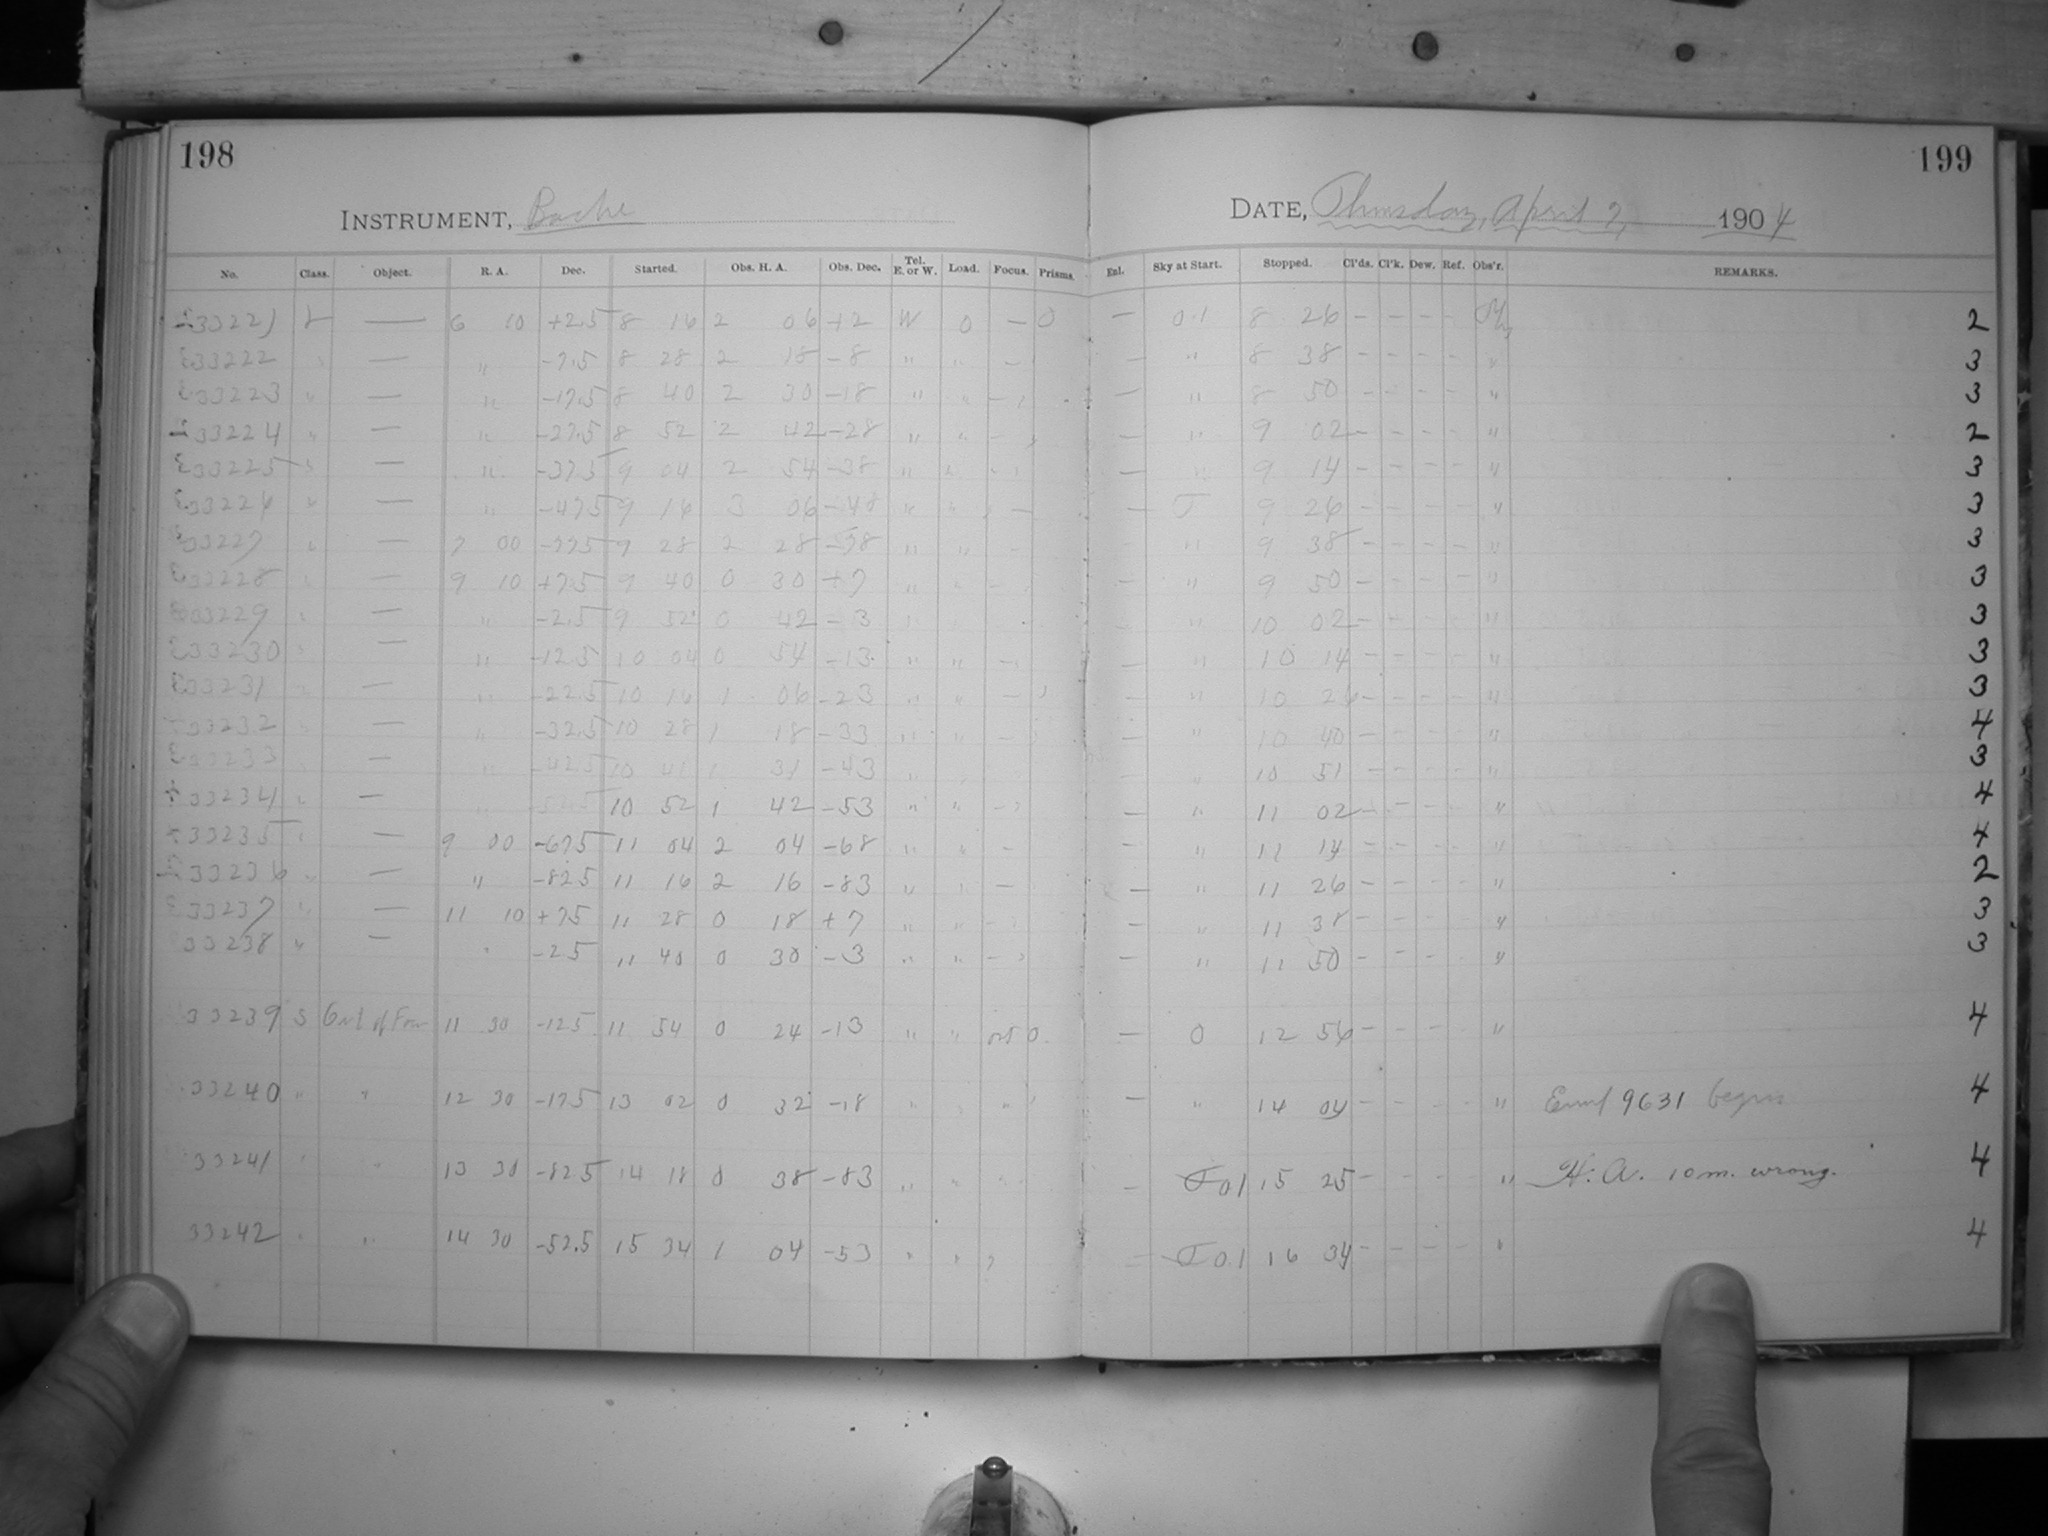 198
199
INSTRUMENT, Bache
DATE, Thursday, April 7, 1904
No. Class. Object. R. A. Dec. Started. Obs. H. A. Obs. Dec. Tel. E. or W. Load. Focus. Prisms. Exl. Sky at Start. Stopped. Cl'ds. Cl'k. Dew. Ref. Obs'r. REMARKS.
33221 — 6 10 +2.5 8 16 2 06 +2 W 0 — 0 — 0.1 8 26 - - - - 2
33222 " — " -7.5 8 28 2 18 -8 " " — — " 8 38 - - - - " 3
33223 " — " -17.5 8 40 2 30 -18 " " - — " 8 50 - - - - " 3
33224 " — " -27.5 8 52 2 42 -28 " " - — " 9 02 - - - - " 2
33225 " — " -37.5 9 04 2 54 -38 " " - — " 9 14 - - - - " 3
33226 " — " -47.5 9 16 3 06 -48 " " — — 9 26 - - - - " 3
33227 " — 7 00 -77.5 9 28 2 28 -78 " " - — " 9 38 - - - - " 3
33228 " — 9 10 +7.5 9 40 0 30 +7 " " - — " 9 50 - - - - " 3
33229 " — " -2.5 9 52 0 42 -3 " " " 10 02 - - - - " 3
33230 " — " -12.5 10 04 0 54 -13 " " - — " 10 14 - - - - " 3
33231 " — " -22.5 10 16 1 06 -23 " " — — " 10 26 - - - - " 3
33232 " — " -32.5 10 28 1 18 -33 " " - — " 10 40 - - - - " 4
33233 — " -42.5 10 41 1 31 -43 " — " 10 51 - - - - " 3
33234 " — " -52.5 10 52 1 42 -53 " " - — " 11 02 - - - - " 4
33235 " — 9 00 -67.5 11 04 2 04 -68 " " - — " 11 14 - - - - " 4
33236 " — " -82.5 11 16 2 16 -83 " " — — " 11 26 - - - - " 2
33237 " — 11 10 +7.5 11 28 0 18 +7 " " - — " 11 38 - - - - " 3
33238 " — " -2.5 11 40 0 30 -3 " " - — " 11 50 - - - - " 3
33239 S Out of Foc 11 30 -12.5 11 54 0 24 -13 " " out 0 — 0 12 56 - - - - " 4
33240 " " 12 30 -17.5 13 02 0 32 -18 " " " — " 14 04 - - - - " 9631 begun 4
33241 " " 13 30 -82.5 14 18 0 38 -83 " " — 0.1 15 25 - - - - " H. A. 10 m. wrong. 4
33242 " " 14 30 -52.5 15 34 1 04 -53 " " — 0.1 16 34 - - - - " 4